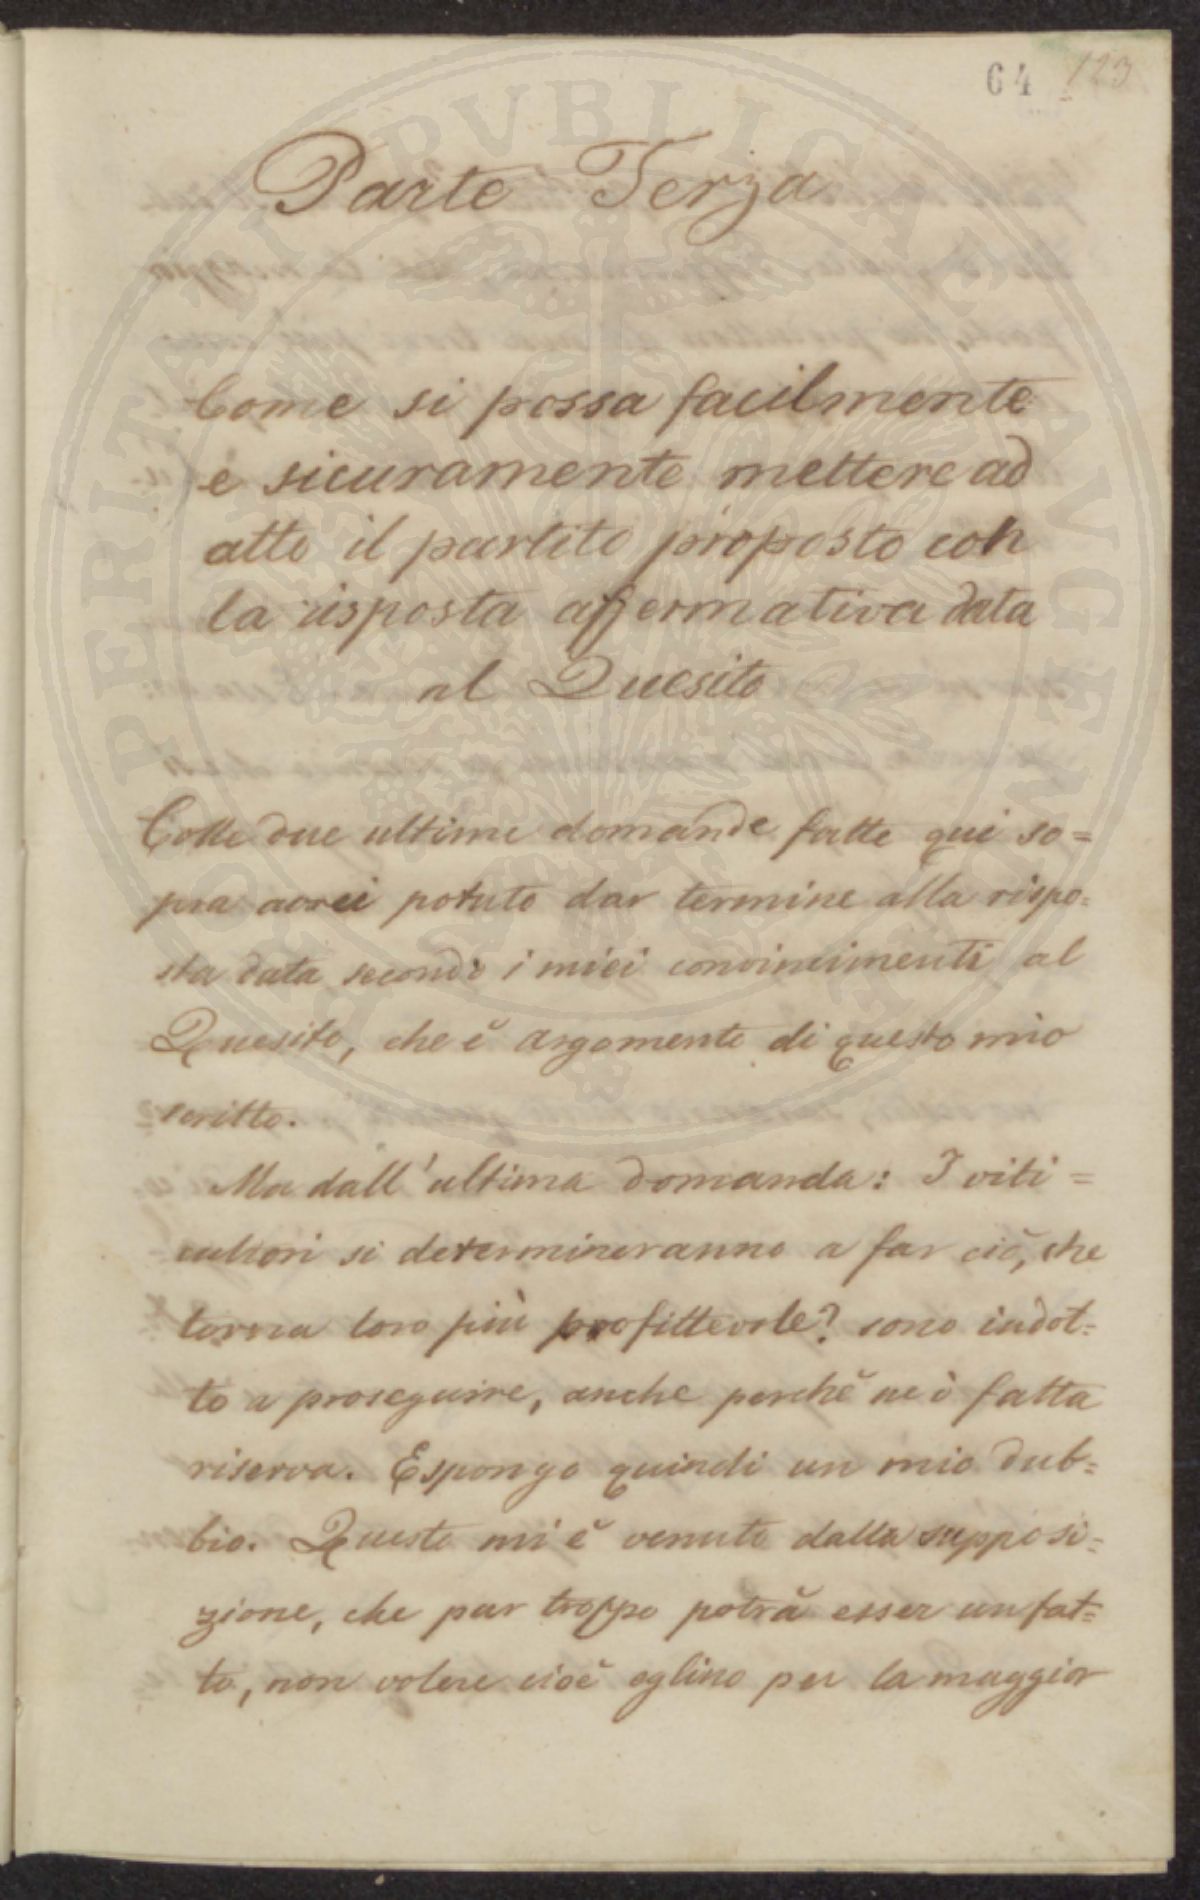 64 123
Parte Terza
Come si possa facilmente
e sicuramente mettere ad
atto il partito proposto con
la risposta affermativa data
al Quesito
Colle due ultime domande fatte qui so=
pra avrei potuto dar termine alla rispo=
sta data secondo i miei convincimenti al
Quesito, che è argomento di questo mio
scritto.
Ma dall'ultima domanda: I viti=
cultori si determineranno a far ciò, che
torna loro più profittevole? sono indot=
to a proseguire, anche perchè ne è fatta
riserva. Espongo quindi un mio dub=
bio. Questo mi è venuto dalla supposi=
zione, che pur troppo potrà esser un fat=
to, non volere cioè eglino per la maggior
PERITATI PVBLICAE AVGENDAE